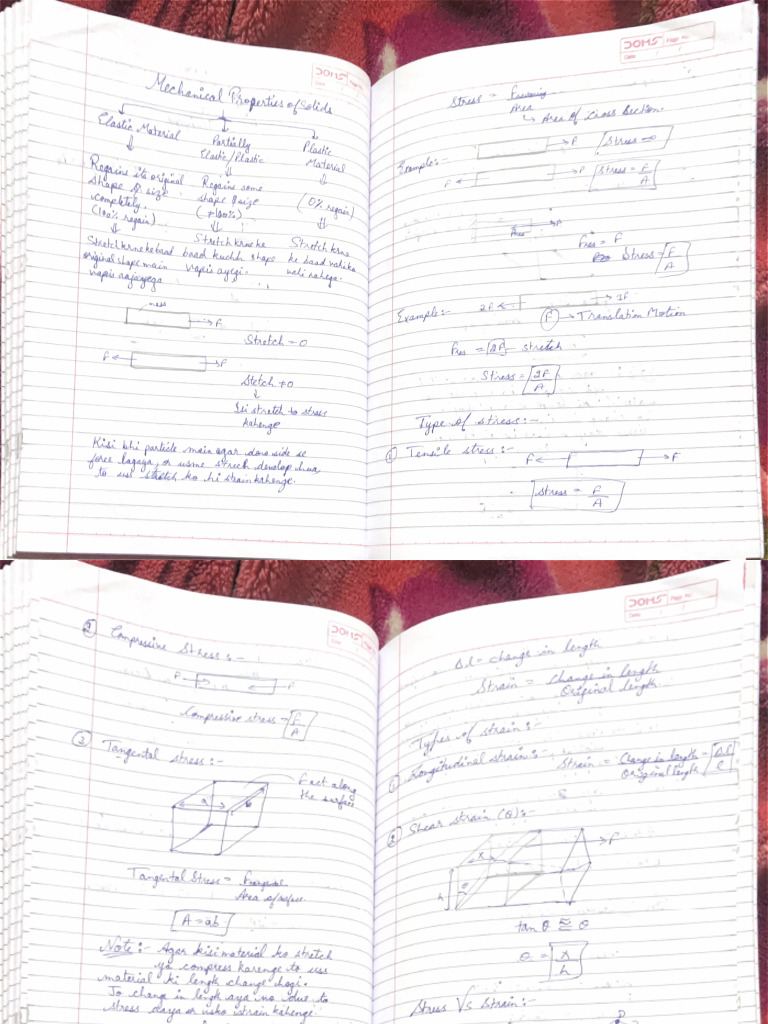 DOMS
Mechanical Properties of Solids
Elastic Material
Partially
Elastic/Plastic
Plastic
Material
Regains its original
shape & size
completely.
(100% regain)
Regains some
shape & size
(≠100%)
(0% regain)
Stretch krne ke baad
original shape main
vapis aajayega
Stretch krne ke
baad kuchh shape
vapis ayegi.
Stretch krne
ke baad vahi ka
vahi rahega.
mass
F
Stretch = 0
F F
Stetch ≠ 0
Isi stretch to stress
kahenge
Kisi bhi particle main agar dono side se
force lagaya, or usme strech develop hua
to uss stretch ko hi strain kahenge.
DOMS
Page No.
Date
Stress =
Area
Area of Cross Section
Example:-
F
Stress = 0
F
Stress = F/A
F
Fres = F
Stress = F/A
Example:-
2F
F → Translation Motion
Fres = 2F stretch
Stress = 2F/A
Type of stress:-
① Tensile stress:-
F F
Stress = F/A
DOMS
② Compressive Stress:-
F F
Compressive stress = F/A
③ Tangental stress:-
F act along
the surface
a
Tangental Stress =
Area of surface
A = ab
Note:- Agar kisi material ko stretch
ya compress karenge to uss
material ki length change hogi.
Jo change in length aya wo due to
stress aaya or usko strain kahenge
DOMS
Page No.
Date
Δl = change in length
Strain = change in length
Original length
Types of strain:-
① Longitudinal strain:-
Strain = Change in length = Δl
Original length
② Shear strain (θ):-
F
x
θ
h
tan θ ≅ θ
θ = x/h
Stress Vs Strain:-
D